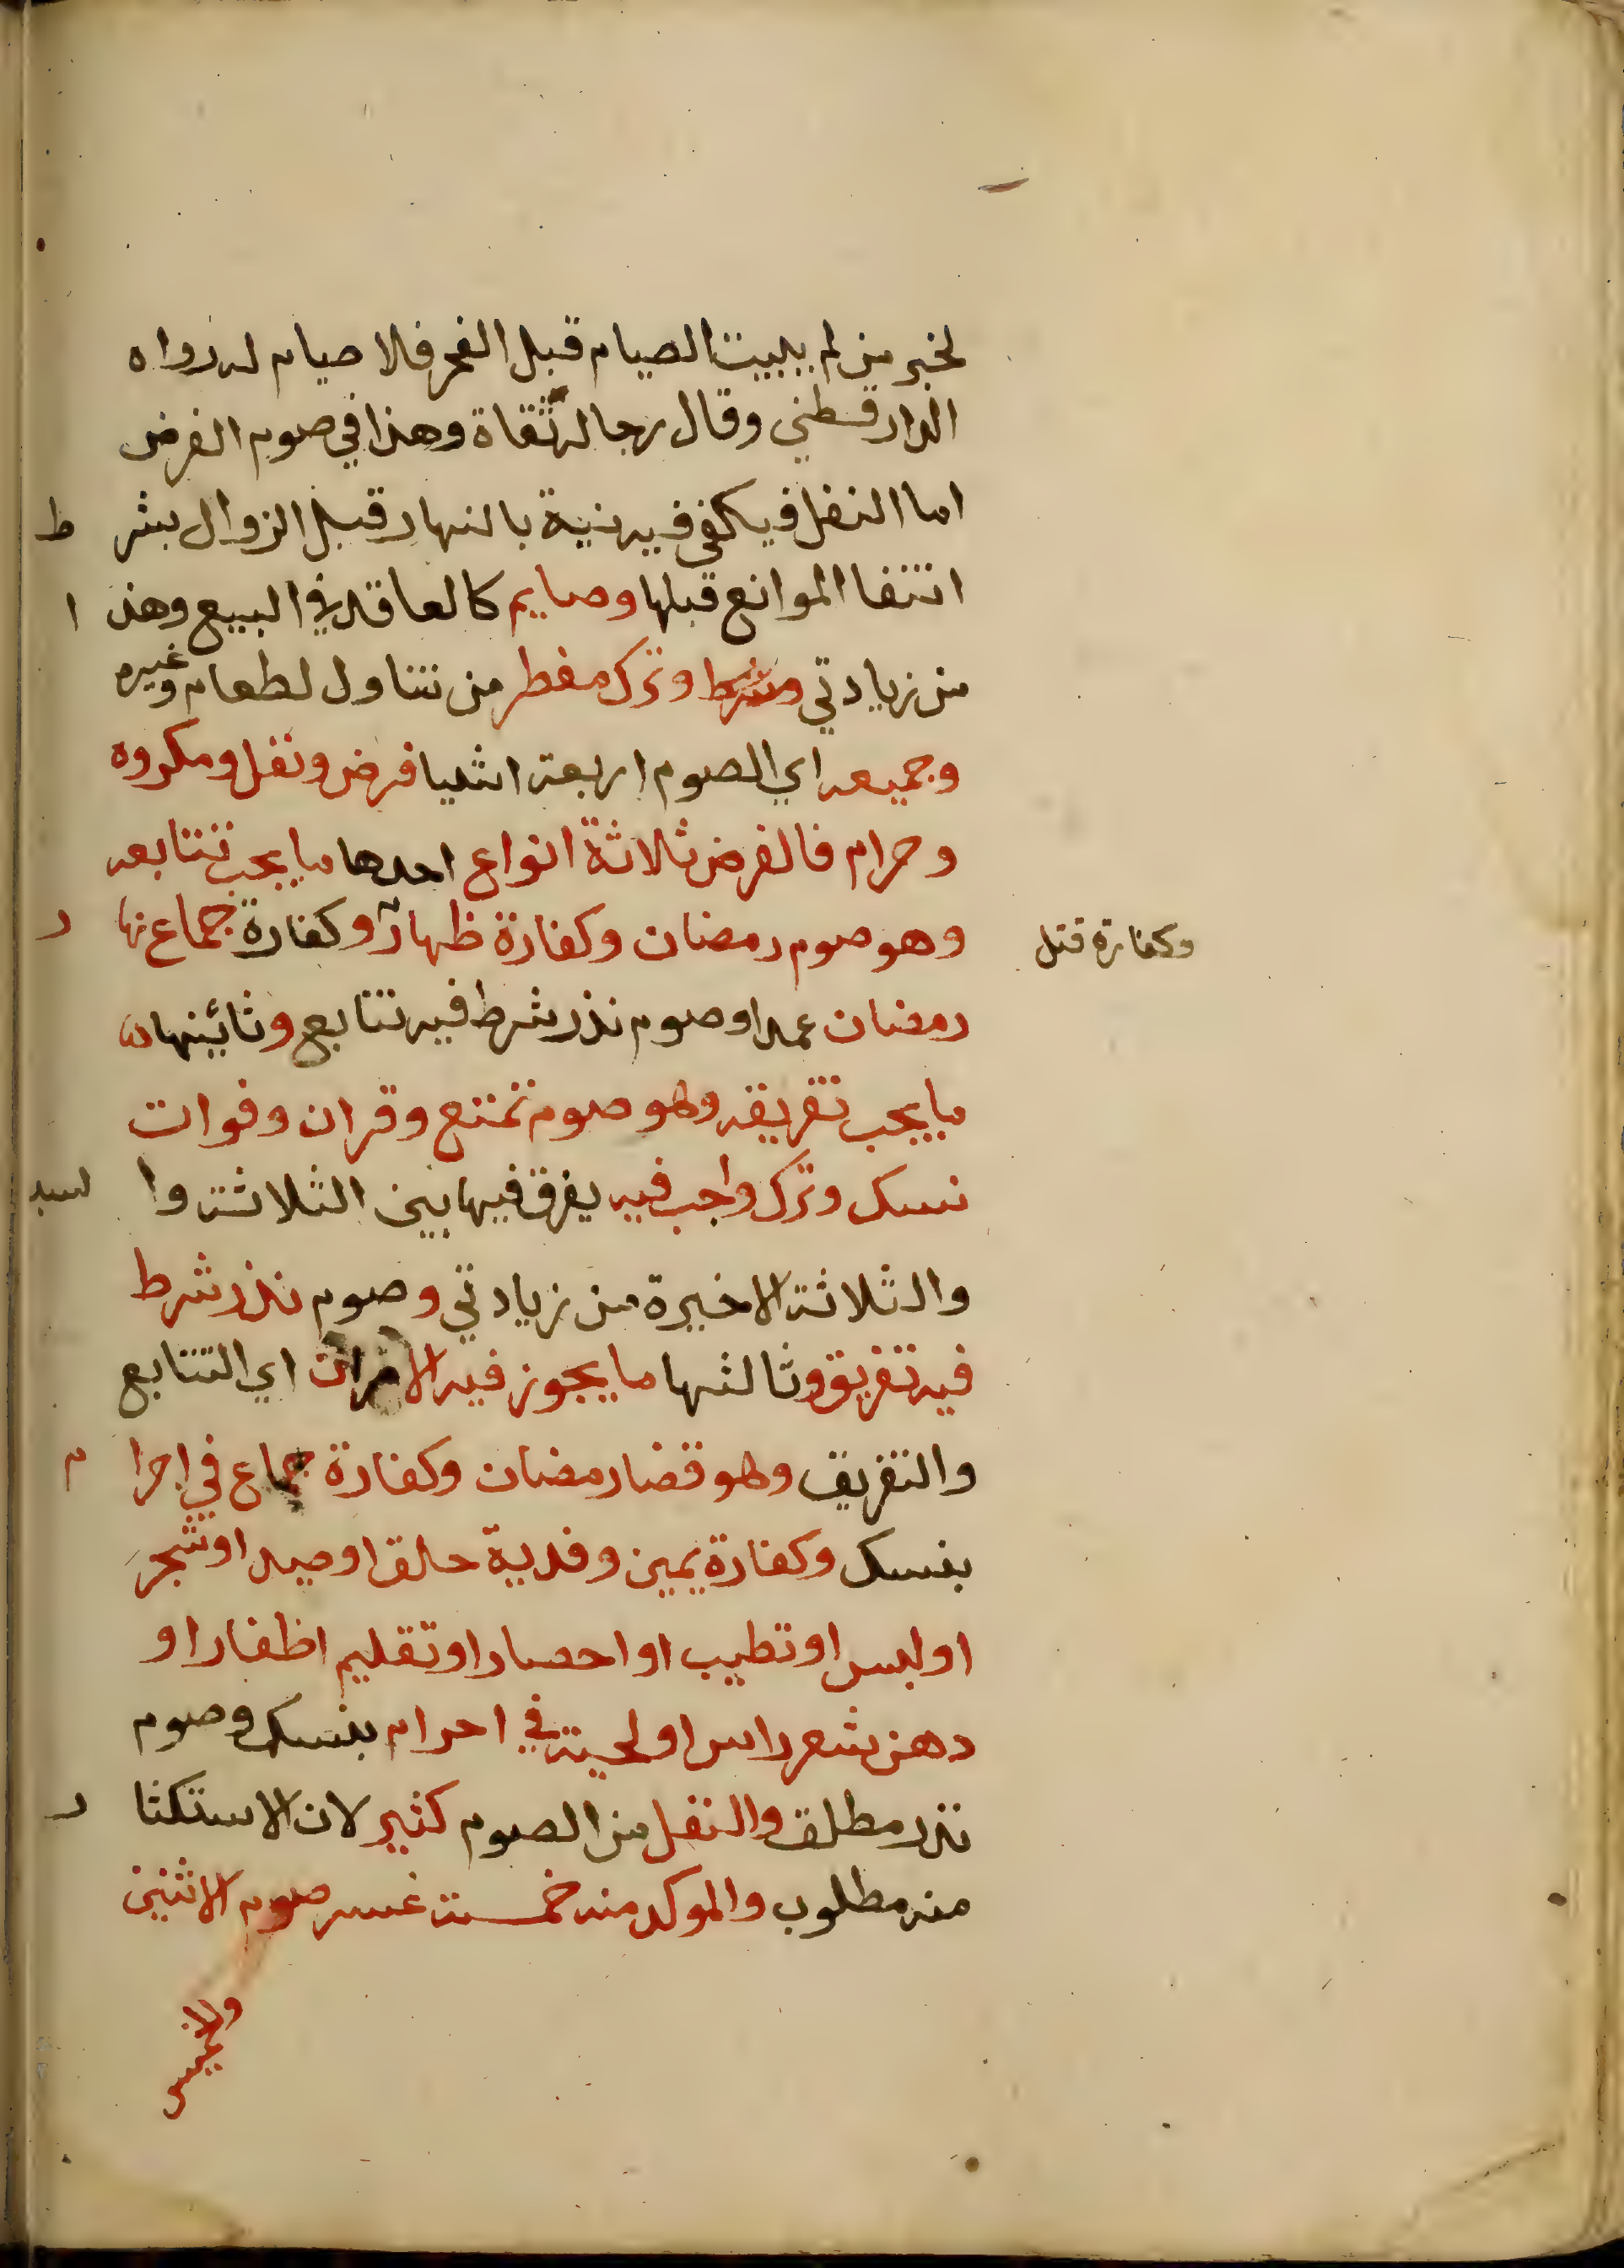 لخبر من لم يبيت الصيام قبل الفجر فلا صيام له رواه
الدارقطني وقال رجاله ثقاة وهذا في صوم الفرض
اما النفل فيكفي فيه نية بالنهار قبل الزوال بشر ط
انتفا الموانع قبلها وصايم كالعاقد في البيع وهذ ا
من زيادتي وترك مفطر من تناول لطعام وغيره
وجميعه اي الصوم اربعة اشيا فرض ونفل ومكروه
وحرام فالفرض ثلاثة انواع احدها ما يجب تتابعه
وهو صوم رمضان وكفارة ظهار وكفارة جماع نها ر
وكفارة قتل
رمضان عمدا وصوم نذر شرط فيه تتابع وثانيها
ما يجب تفريقه وهو صوم تمتع وقران وفوات
نسك وترك واجب فيه يفرق فيها بين الثلاثة وا لسبعه
والثلاثة الاخيرة من زيادتي وصوم نذر شرط
فيه تفريق وثالثها ما يجوز فيه الامران اي التتابع
والتفريق وهو قضا رمضان وكفارة جماع في احرا م
بنسك وكفارة يمين وفدية حلق او صيد او شجر
او لبس او تطيب او احصار او تقليم اظفار او
دهن شعر راس او لحية في احرام بنسك وصوم
نذر مطلق والنفل من الصوم كثير لان الاستكثا ر
منه مطلوب والموكد منه خمسة عشر صوم الاثنين
والخميس